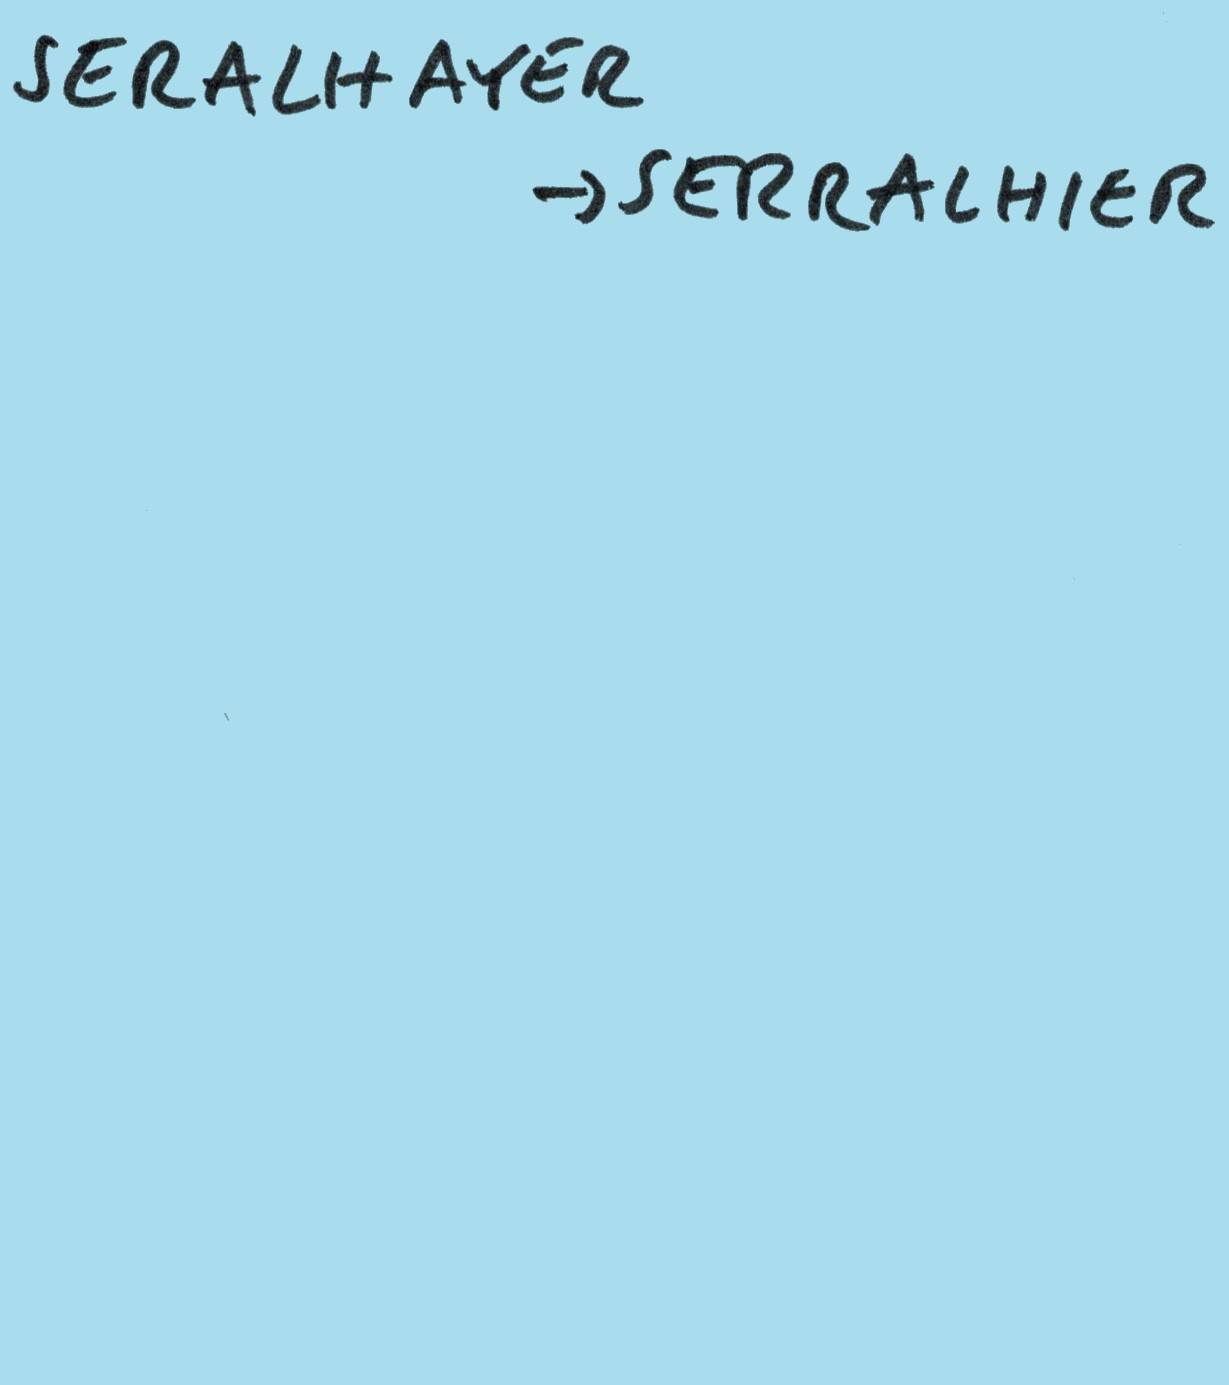 SERALHAYER
→ SERRALHIER